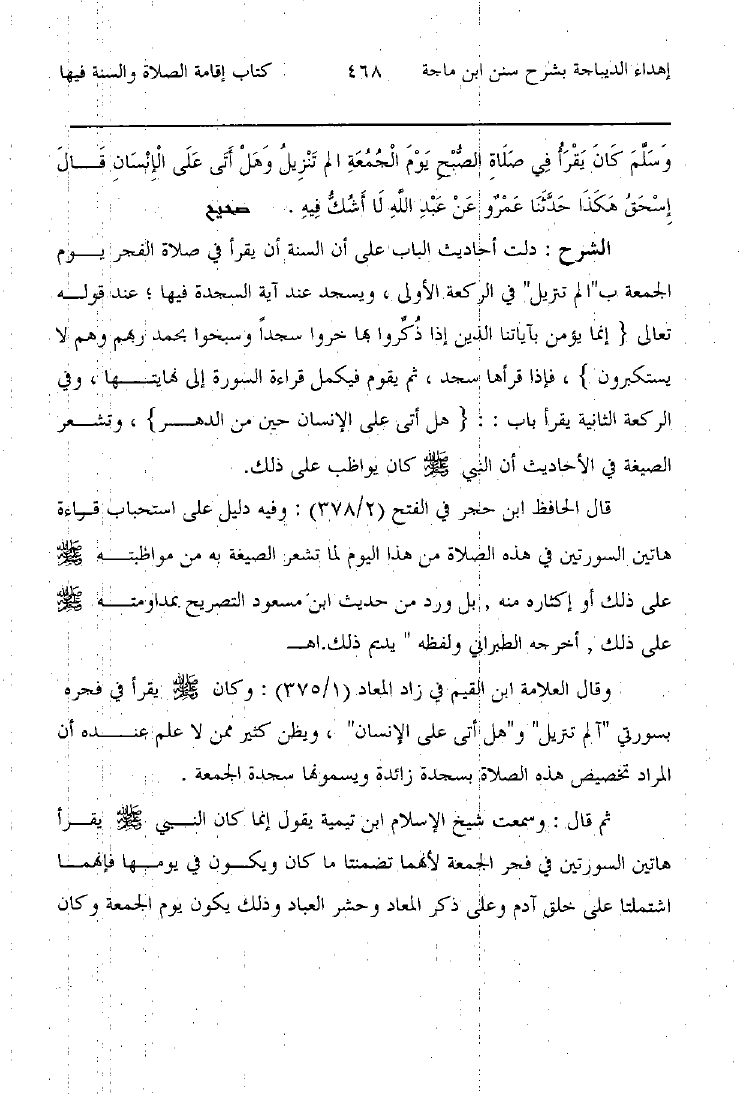 إهداء الديباجة بشرح سنن ابن ماجة ٤٦٨ كتاب إقامة الصلاة والسنة فيها
وَسَلَّمَ كَانَ يَقْرَأُ فِي صَلَاةِ الصُّبْحِ يَوْمَ الْجُمُعَةِ الم تَنْزِيلُ وَهَلْ أَتَى عَلَى الْإِنْسَانِ قَـــالَ
إِسْحَقُ هَكَذَا حَدَّثَنَا عَمْرٌو عَنْ عَبْدِ اللَّهِ لَا أَشُكُّ فِيهِ . صحيح
الشرح : دلت أحاديث الباب على أن السنة أن يقرأ في صلاة الفجر يـــوم
الجمعة ب"الم تنزيل" في الركعة الأولى ، ويسجد عند آية السجدة فيها ؛ عند قولـــه
تعالى { إنما يؤمن بآياتنا الذين إذا ذُكِّروا بها خروا سجداً وسبحوا بحمد ربهم وهم لا
يستكبرون } ، فإذا قرأها سجد ، ثم يقوم فيكمل قراءة السورة إلى نهايتـــها ، وفي
الركعة الثانية يقرأ باب : : { هل أتى على الإنسان حين من الدهـــر} ، وتشـــعر
الصيغة في الأحاديث أن النبي ﷺ كان يواظب على ذلك.
قال الحافظ ابن حجر في الفتح (٣٧٨/٢) : وفيه دليل على استحباب قـراءة
هاتين السورتين في هذه الصلاة من هذا اليوم لما تشعر الصيغة به من مواظبتـــه ﷺ
على ذلك أو إكثاره منه , بل ورد من حديث ابن مسعود التصريح بمداومتـــه ﷺ
على ذلك , أخرجه الطبراني ولفظه " يديم ذلك.اهـــ
وقال العلامة ابن القيم في زاد المعاد (٣٧٥/١) : وكان ﷺ يقرأ في فجره
بسورتي "آلم تنزيل" و"هل أتى على الإنسان" ، ويظن كثير ممن لا علم عنـــده أن
المراد تخصيص هذه الصلاة بسجدة زائدة ويسمونها سجدة الجمعة .
ثم قال : وسمعت شيخ الإسلام ابن تيمية يقول إنما كان النـــبي ﷺ يقـــرأ
هاتين السورتين في فجر الجمعة لأنهما تضمنتا ما كان ويكـــون في يومـــها فإنهمـــا
اشتملتا على خلق آدم وعلى ذكر المعاد وحشر العباد وذلك يكون يوم الجمعة وكان